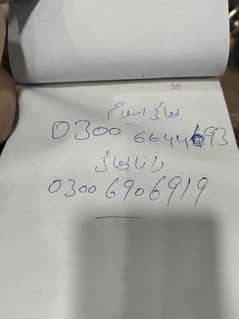 39
بھائی اسلام
0300 6644693
رانا بھائی
0300 6906919